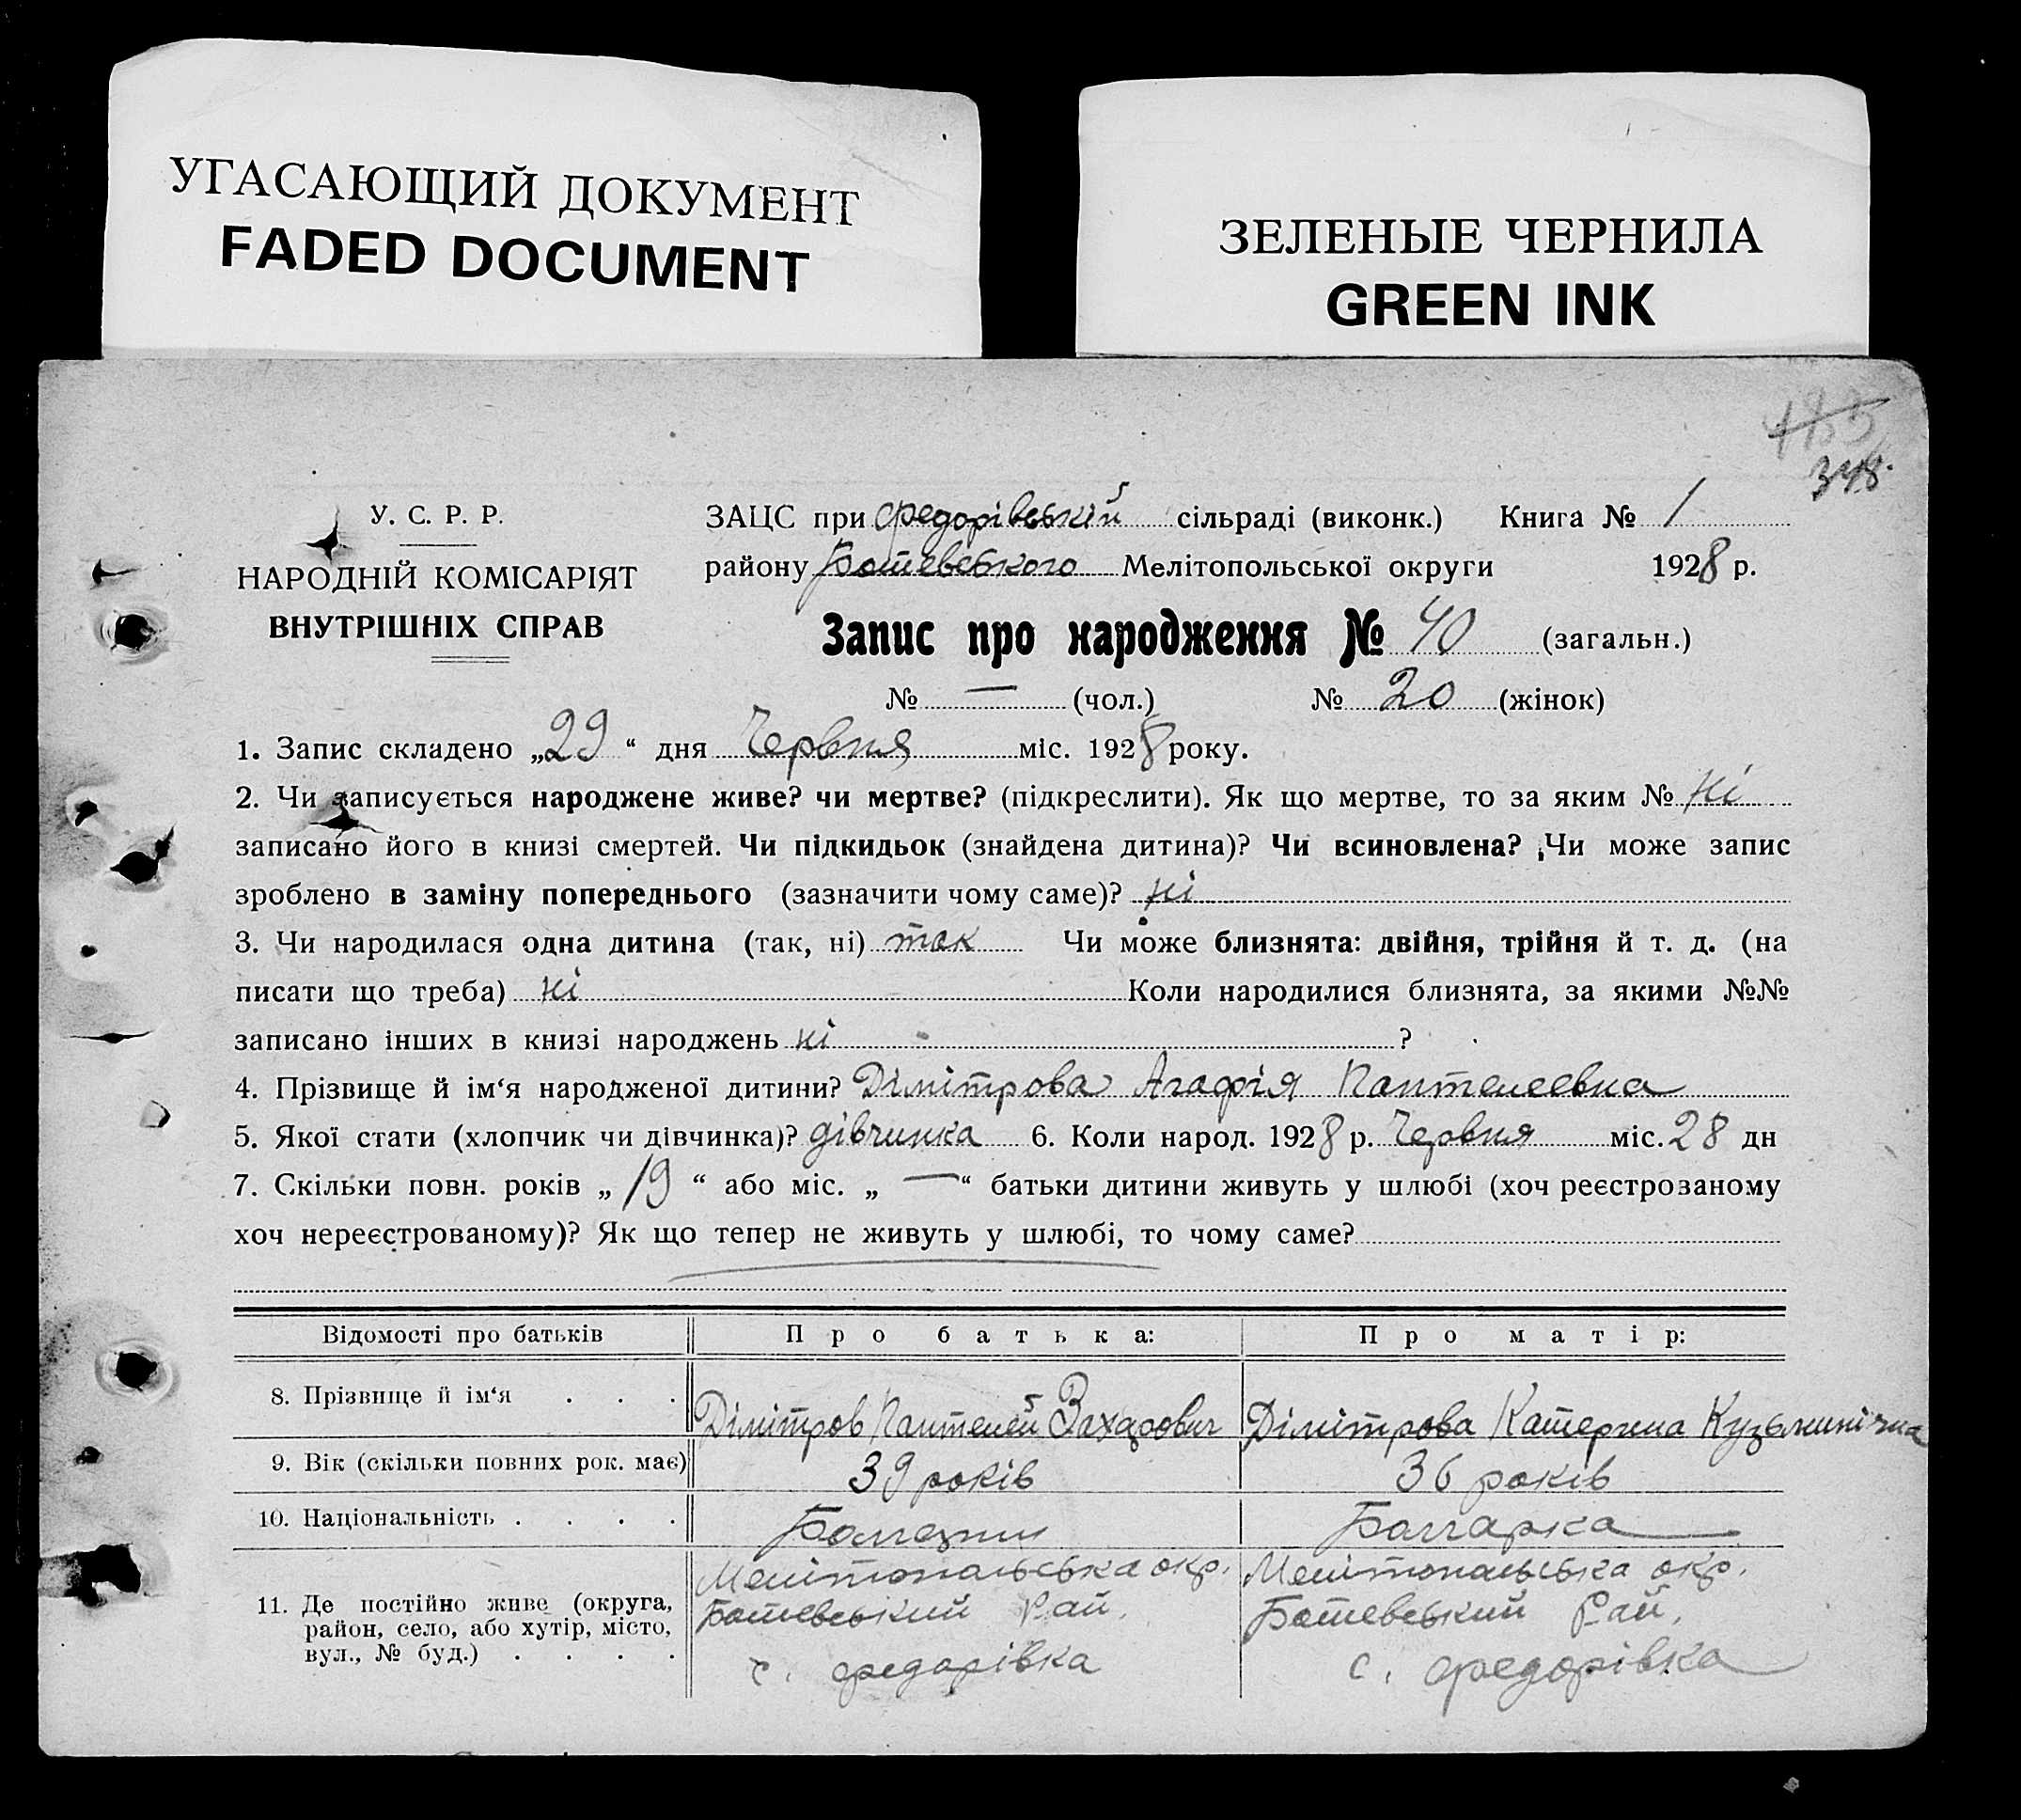 УГАСАЮЩИЙ ДОКУМЕНТ
FADED DOCUMENT
ЗЕЛЕНЫЕ ЧЕРНИЛА
GREEN INK
348.
У. С. Р. Р.
НАРОДНІЙ КОМІСАРІЯТ
ВНУТРІШНІХ СПРАВ
ЗАЦС при Федорівській сільраді (виконк.) Книга № 1
району Ботевського Мелітопольської округи 1928 р.
Запис про народження № 40 (загальн.)
№ — (чол.) № 20 (жінок)
1. Запис складено „29“ дня Червня міс. 1928 року.
2. Чи записується народжене живе? чи мертве? (підкреслити). Як що мертве, то за яким № Ні
записано його в книзі смертей. Чи підкидьок (знайдена дитина)? Чи всиновлена? Чи може запис
зроблено в заміну попереднього (зазначити чому саме)? Ні
3. Чи народилася одна дитина (так, ні) так Чи може близнята: двійня, трійня й т. д. (на
писати що треба) Ні Коли народилися близнята, за якими №№
записано інших в книзі народжень ні ?
4. Прізвище й ім‘я народженої дитини? Дімітрова Агафія Пантелеевна
5. Якої стати (хлопчик чи дівчинка)? дівчинка 6. Коли народ. 1928 р. Червня міс. 28 дн
7. Скільки повн. років „19“ або міс. „—“ батьки дитини живуть у шлюбі (хоч реєстрозаному
хоч нереєстрованому)? Як що тепер не живуть у шлюбі, то чому саме?
Відомості про батьків Про батька: Про матір:
8. Прізвище й ім‘я . . . Дімітров Пантелей Захарович Дімітрова Катерина Кузьминічна
9. Вік (скільки повних рок. має) 39 років 36 років
10. Національність . . . . Болгарин Болгарка
11. Де постійно живе (округа, район, село, або хутір, місто, вул., № буд.) . . . .
Мелітопольська окр. Мелітопольська окр.
Ботевський Рай. Ботевський Рай.
с. Федорівка с. Федорівка